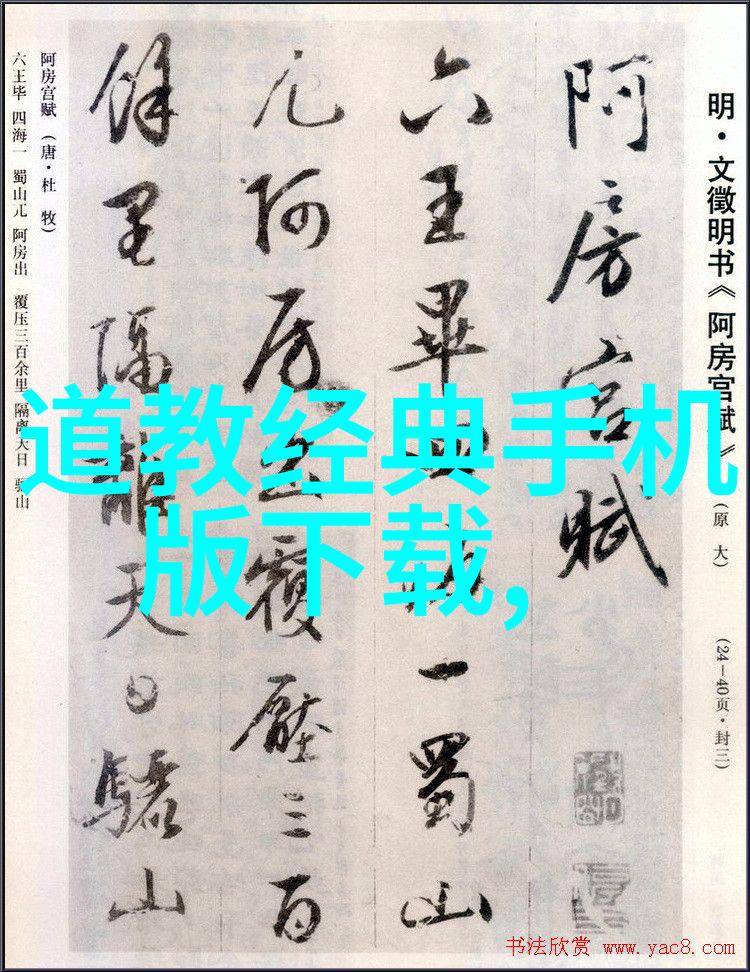 明·文徵明书《阿房宫赋》(原大) (24—40页·封三)
阿房宫賦
六王畢四海一蜀山
兀阿房出覆壓三百
餘里隔離天日驪山
阿房宫赋（唐·杜 牧）
六王毕 四海一 蜀山兀 阿房出 覆压三百余里 隔离天日 骊山
道教经典手机
版下载,
书法欣赏 www.yac8.com